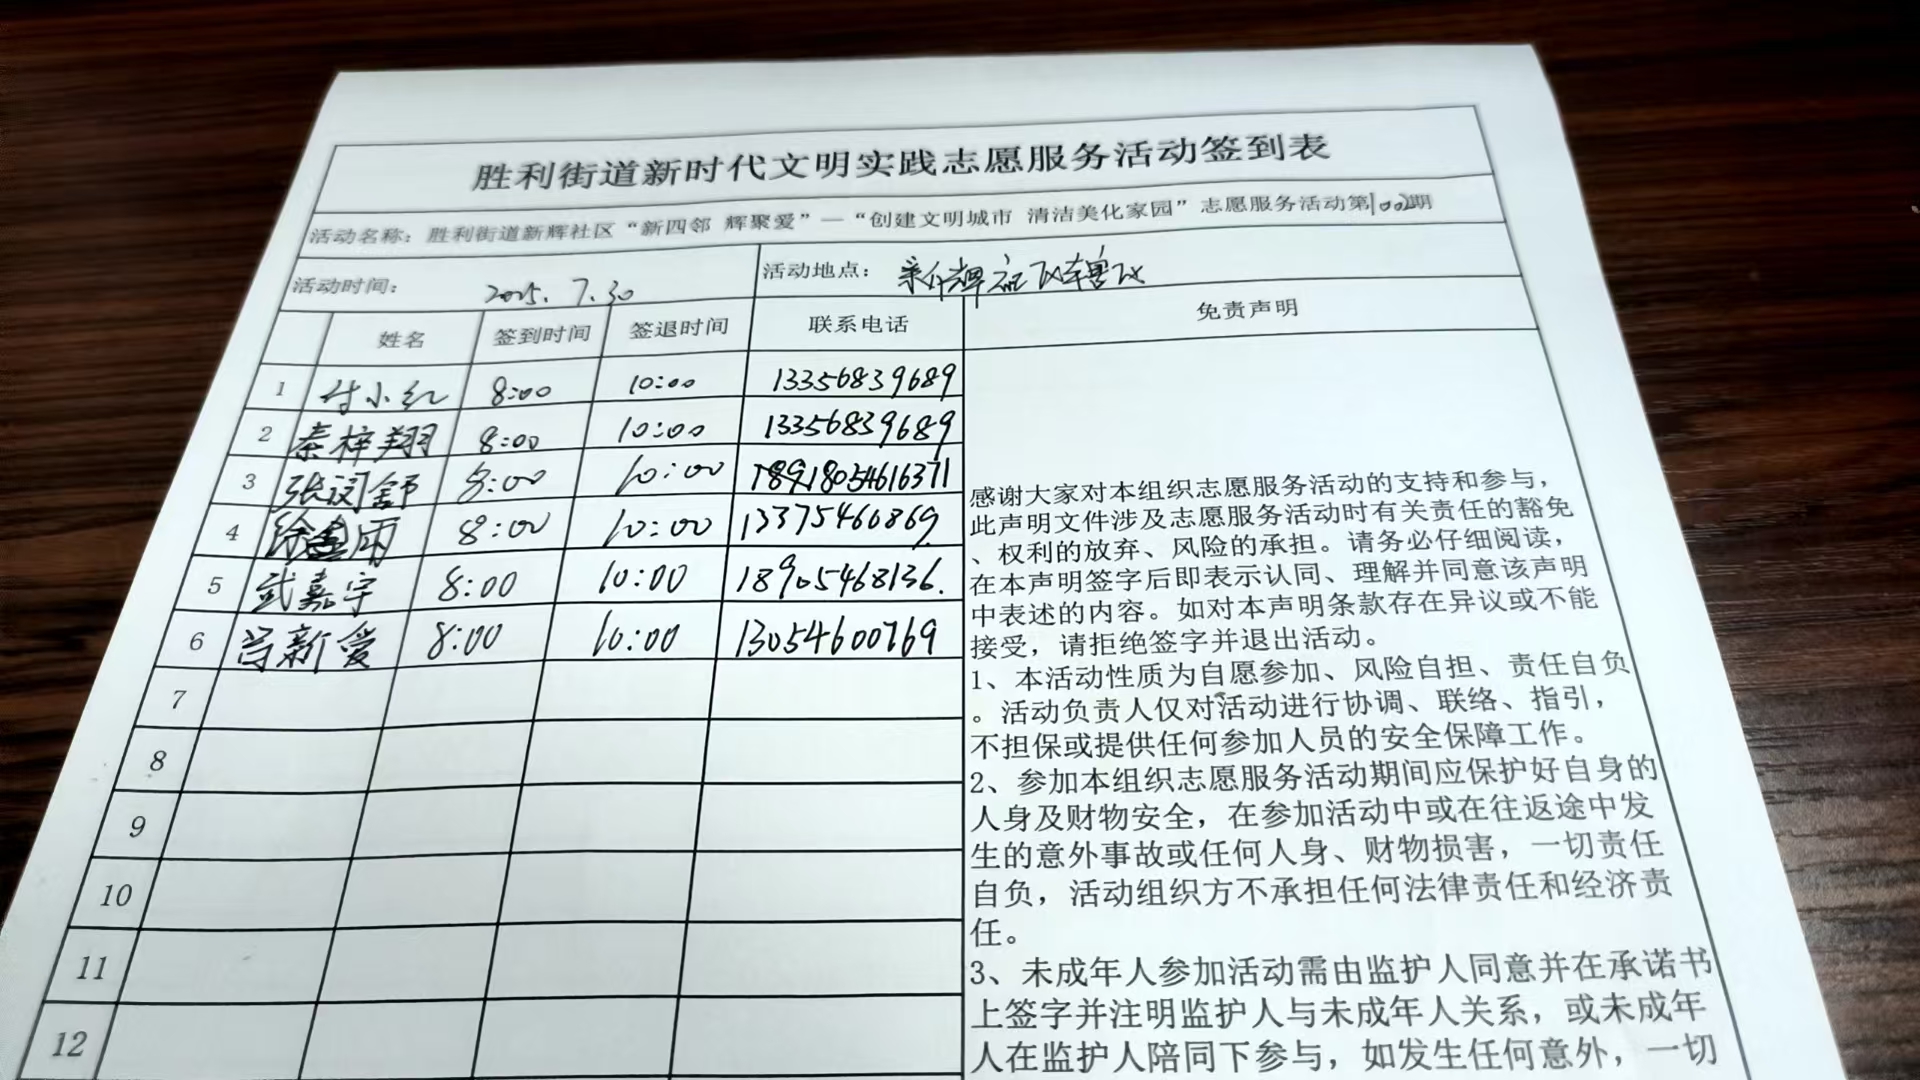 胜利街道新时代文明实践志愿服务活动签到表
活动名称：胜利街道新辉社区“新四邻 辉聚爱”—“创建文明城市 清洁美化家园”志愿服务活动第102期
活动时间： 2025.7.30 活动地点：新辉社区辖区
姓名 签到时间 签退时间 联系电话 免责声明
1 付小红 8:00 10:00 13356839689
2 秦梓翔 8:00 10:00 13356839689
3 张润舒 8:00 10:00
4 8:00 10:00 13375460869
5 武嘉宇 8:00 10:00 18905468136.
6 吕新爱 8:00 10:00 13054600769
7
8
9
10
11
12
感谢大家对本组织志愿服务活动的支持和参与，
此声明文件涉及志愿服务活动时有关责任的豁免
、权利的放弃、风险的承担。请务必仔细阅读，
在本声明签字后即表示认同、理解并同意该声明
中表述的内容。如对本声明条款存在异议或不能
接受，请拒绝签字并退出活动。
1、本活动性质为自愿参加、风险自担、责任自负
。活动负责人仅对活动进行协调、联络、指引，
不担保或提供任何参加人员的安全保障工作。
2、参加本组织志愿服务活动期间应保护好自身的
人身及财物安全，在参加活动中或在往返途中发
生的意外事故或任何人身、财物损害，一切责任
自负，活动组织方不承担任何法律责任和经济责
任。
3、未成年人参加活动需由监护人同意并在承诺书
上签字并注明监护人与未成年人关系，或未成年
人在监护人陪同下参与，如发生任何意外，一切